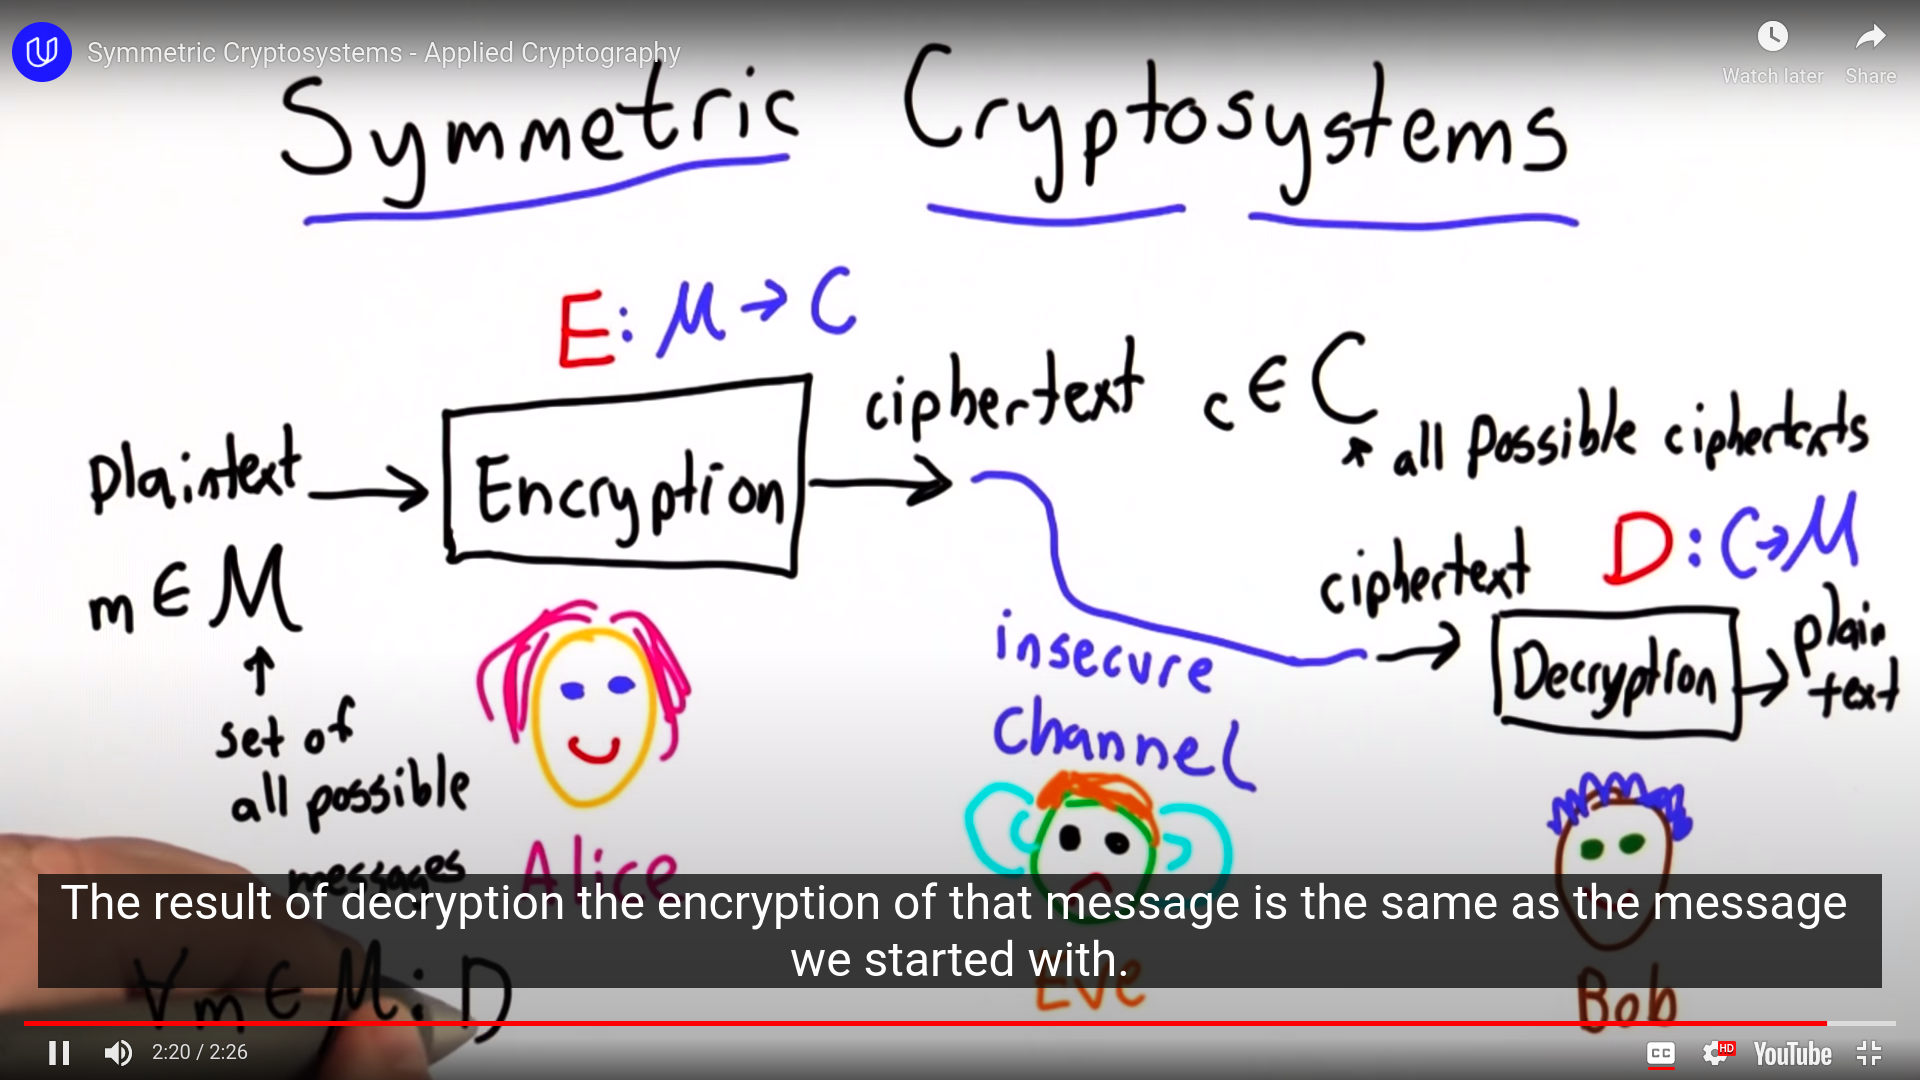 Symmetric Cryptosystems - Applied Cryptography
Watch later
Share
Symmetric Cryptosystems
E: M → C
ciphertext c ∈ C
all possible ciphertexts
Plaintext
Encryption
m ∈ M
D: C → M
ciphertext
Decryption
plain
text
insecure
channel
set of
all possible
messages
Alice
Eve
Bob
∀ m ∈ M: D
The result of decryption the encryption of that message is the same as the message
we started with.
2:20 / 2:26
CC
HD
YouTube